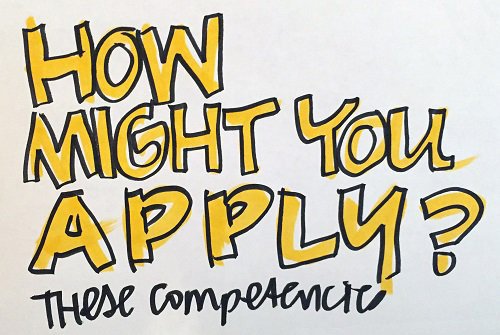 HOW
MIGHT YOU
APPLY?
THese competencies